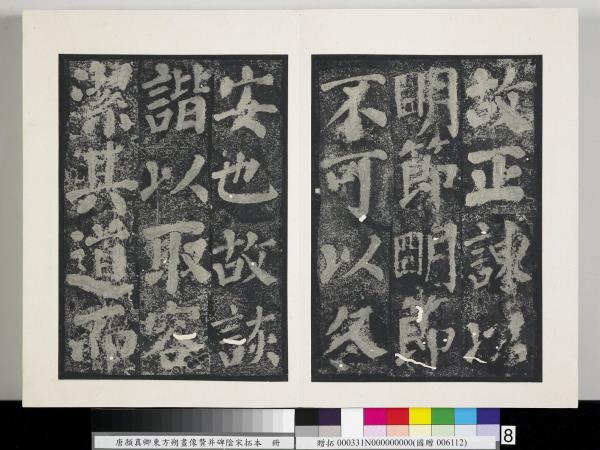 故正諫以
明節明節
不可以久
安也故詼
諧以取容
潔其道而
唐顏真卿東方朔畫像贊并碑陰宋拓本 冊
贈拓 000331N000000000(國贈 006112)
8